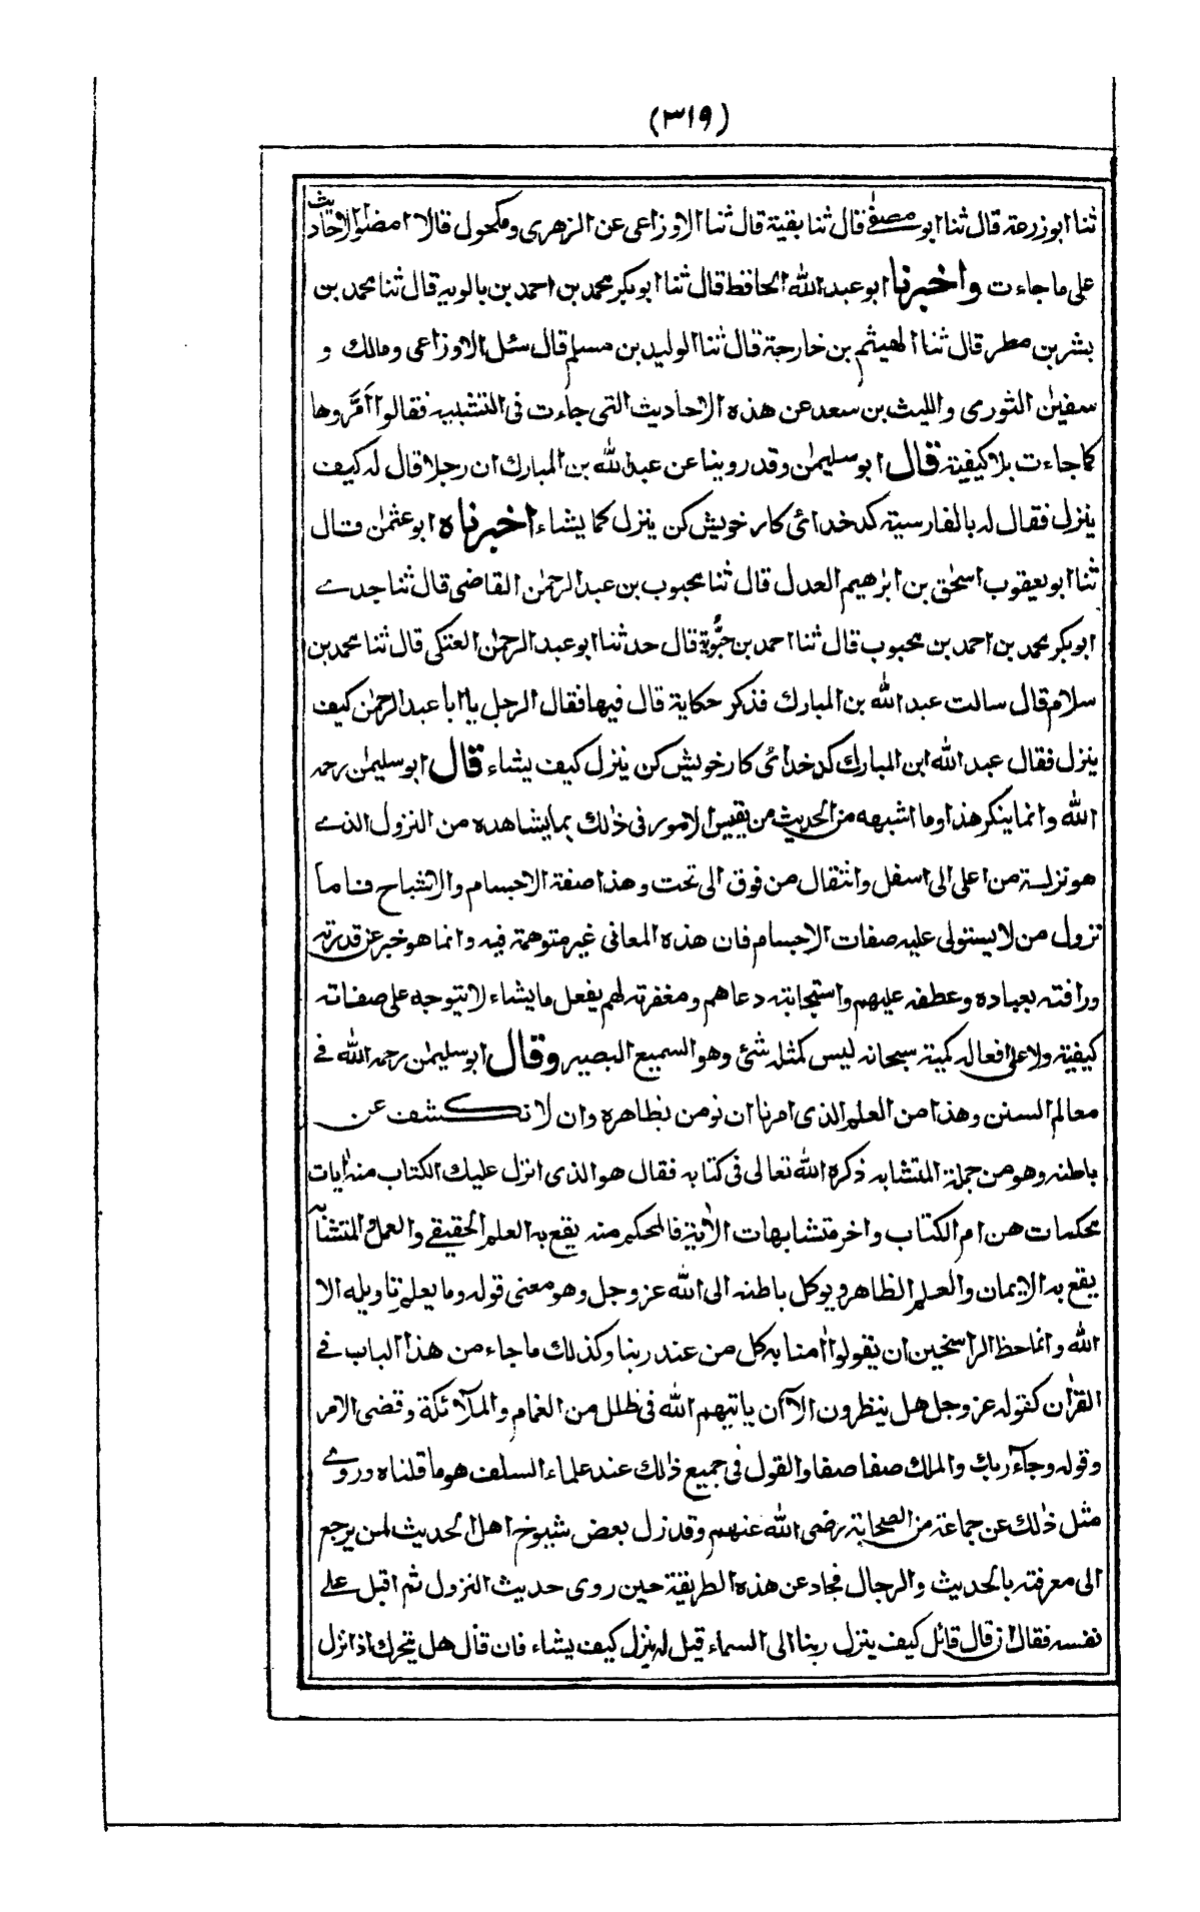 (٣١٩)
ثنا ابوزرعة قال ثنا ابو مصفى قال ثنا بقية قال ثنا الاوزاعى عن الزهرى ومكحول قالا امضوا الاحاديث
على ماجاءت واخبرنا ابو عبد الله الحافظ قال ثنا ابوبكر محمد بن احمد بن بالويه قال ثنا محمد بن
بشر بن مطر قال ثنا الهيثم بن خارجة قال ثنا الوليد بن مسلم قال سئل الاوزاعى ومالك و
سفيٰن الثورى والليث بن سعد عن هذه الاحاديث التى جاءت فى التشبيه فقالوا أمَرُّوها
كماجاءت بلا كيفية قال ابو سليمٰن وقد روينا عن عبد الله بن المبارك ان رجلا قال له كيف
ينزل فقال له بالفارسية كدخدائ كار خويش كن ينزل كما يشاء اخبرناه ابو عثمٰن قال
ثنا ابو يعقوب اسحٰق بن ابرٰهيم العدل قال ثنا محبوب بن عبد الرحمٰن القاضى قال ثنا جدے
ابوبكر محمد بن احمد بن محبوب قال ثنا احمد بن حيُّوية قال حدثنا ابو عبد الرحمٰن العتكى قال ثنا محمد بن
سلام قال سالت عبد الله بن المبارك فذكر حكاية قال فيها فقال الرجل يا ابا عبد الرحمٰن كيف
ينزل فقال عبد الله ابن المبارك كدخدائ كار خويش كن ينزل كيف يشاء قال ابو سليمٰن رحمه
الله وانما ينكر هذا وما اشبهه من الحديث من يقيس الامور فى ذٰلك بما يشاهده من النزول الذے
هو نزلة من اعلى الى اسفل وانتقال من فوق الى تحت وهذا صفة الاجسام والاشباح فاما
نزول من لا يستولى عليه صفات الاجسام فان هذه المعانى غير متوهمة فيه وانما هو خبر عن قدرته
ورافته بعباده وعطفه عليهم واستجابته دعاهم ومغفرته لهم يفعل ما يشاء لا يتوجه على صفاته
كيفية ولا على افعاله كمية سبحانه ليس كمثله شئ وهو السميع البصير وقال ابو سليمٰن رحمه الله فے
معالم السنن وهذا من العلم الذى امرنا ان نومن بظاهره وان لا نكشف عن
باطنه وهو من جملة المتشابه ذكره الله تعالى فى كتابه فقال هو الذى انزل عليك الكتاب منه اٰيات
محكمات هن ام الكتاب واخر متشابهات الاٰية فالمحكم منه يقع به العلم الحقيقے والعمل والمتشابه
يقع به الايمان والعلم الظاهر ويوكل باطنه الى الله عز وجل وهو معنى قوله وما يعلم تاويله الا
الله وانما حظ الراسخين ان يقولوا اٰمنا به كل من عند ربنا وكذلك ماجاء من هذا الباب فے
القراٰن كقوله عز وجل هل ينظرون الآ ان ياتيهم الله فى ظلل من الغمام والملآئكة وقضى الامر
وقوله وجآء ربك والملك صفا صفا والقول فى جميع ذٰلك عند علماء السلف هو ما قلناه وروے
مثل ذٰلك عن جماعة من الصحابة رضى الله عنهم وقد زل بعض شيوخ اهل الحديث لمن يرجع
الى معرفته بالحديث والرجال فجاد عن هذه الطريقة حين روى حديث النزول ثم اقبل على
نفسه فقال ان قال قائل كيف ينزل ربنا الى السماء قيل له ينزل كيف يشاء فان قال هل يتحرك اذا نزل